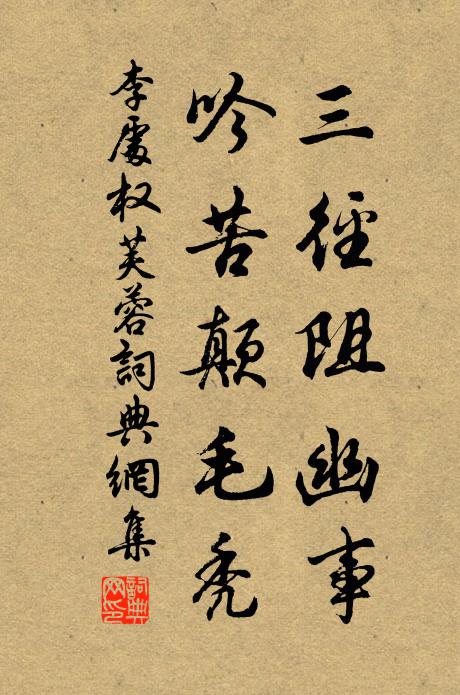 三徑阻幽事
吟苦顛毛秃
李處权芙蓉詞典網集
詞典网印